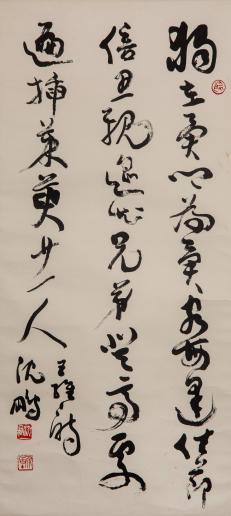 獨在異鄉為異客每逢佳節
倍思親遥知兄弟登高處
遍插茱萸少一人
王維詩
沈鵬